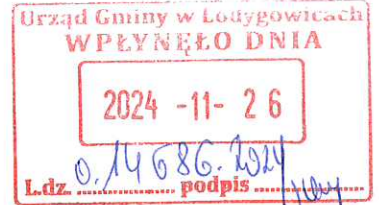 Urząd Gminy w Łodygowicach
WPŁYNĘŁO DNIA
2024 -11- 26
L.dz. 0.14686.2024 podpis